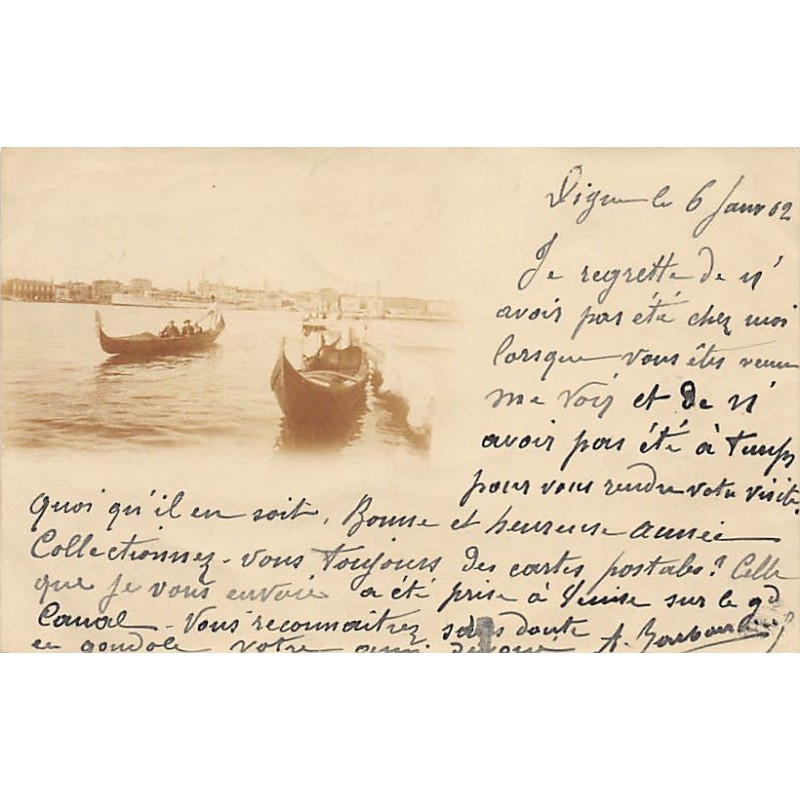 Digne le 6 Janv 02
Je regrette de n'
avoir pas été chez moi
lorsque vous êtes venu
me voir et de n'
avoir pas été à temps
pour vous rendre votre visite.
Quoi qu'il en soit, Bonne et heureuse année
Collectionnez-vous toujours des cartes postales? Celle
que je vous envoie a été prise à Venise sur le gd
Canal - Vous reconnaitrez sans doute
en gondole votre ami A.